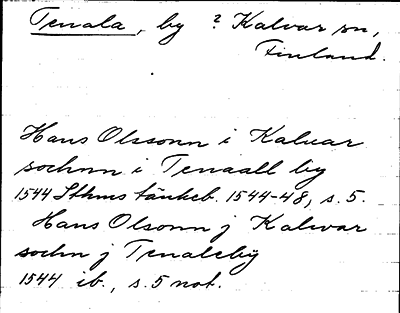 Tenala, by ? Kalvar sn,
Finland.
Hans Olssonn i Kaluar
sochnn i Tenaall by
1544 Sthms tänkeb. 1544-48, s. 5.
Hans Olsonn j Kalwar
sochn j Tenaleby
1544 ib., s. 5 not.